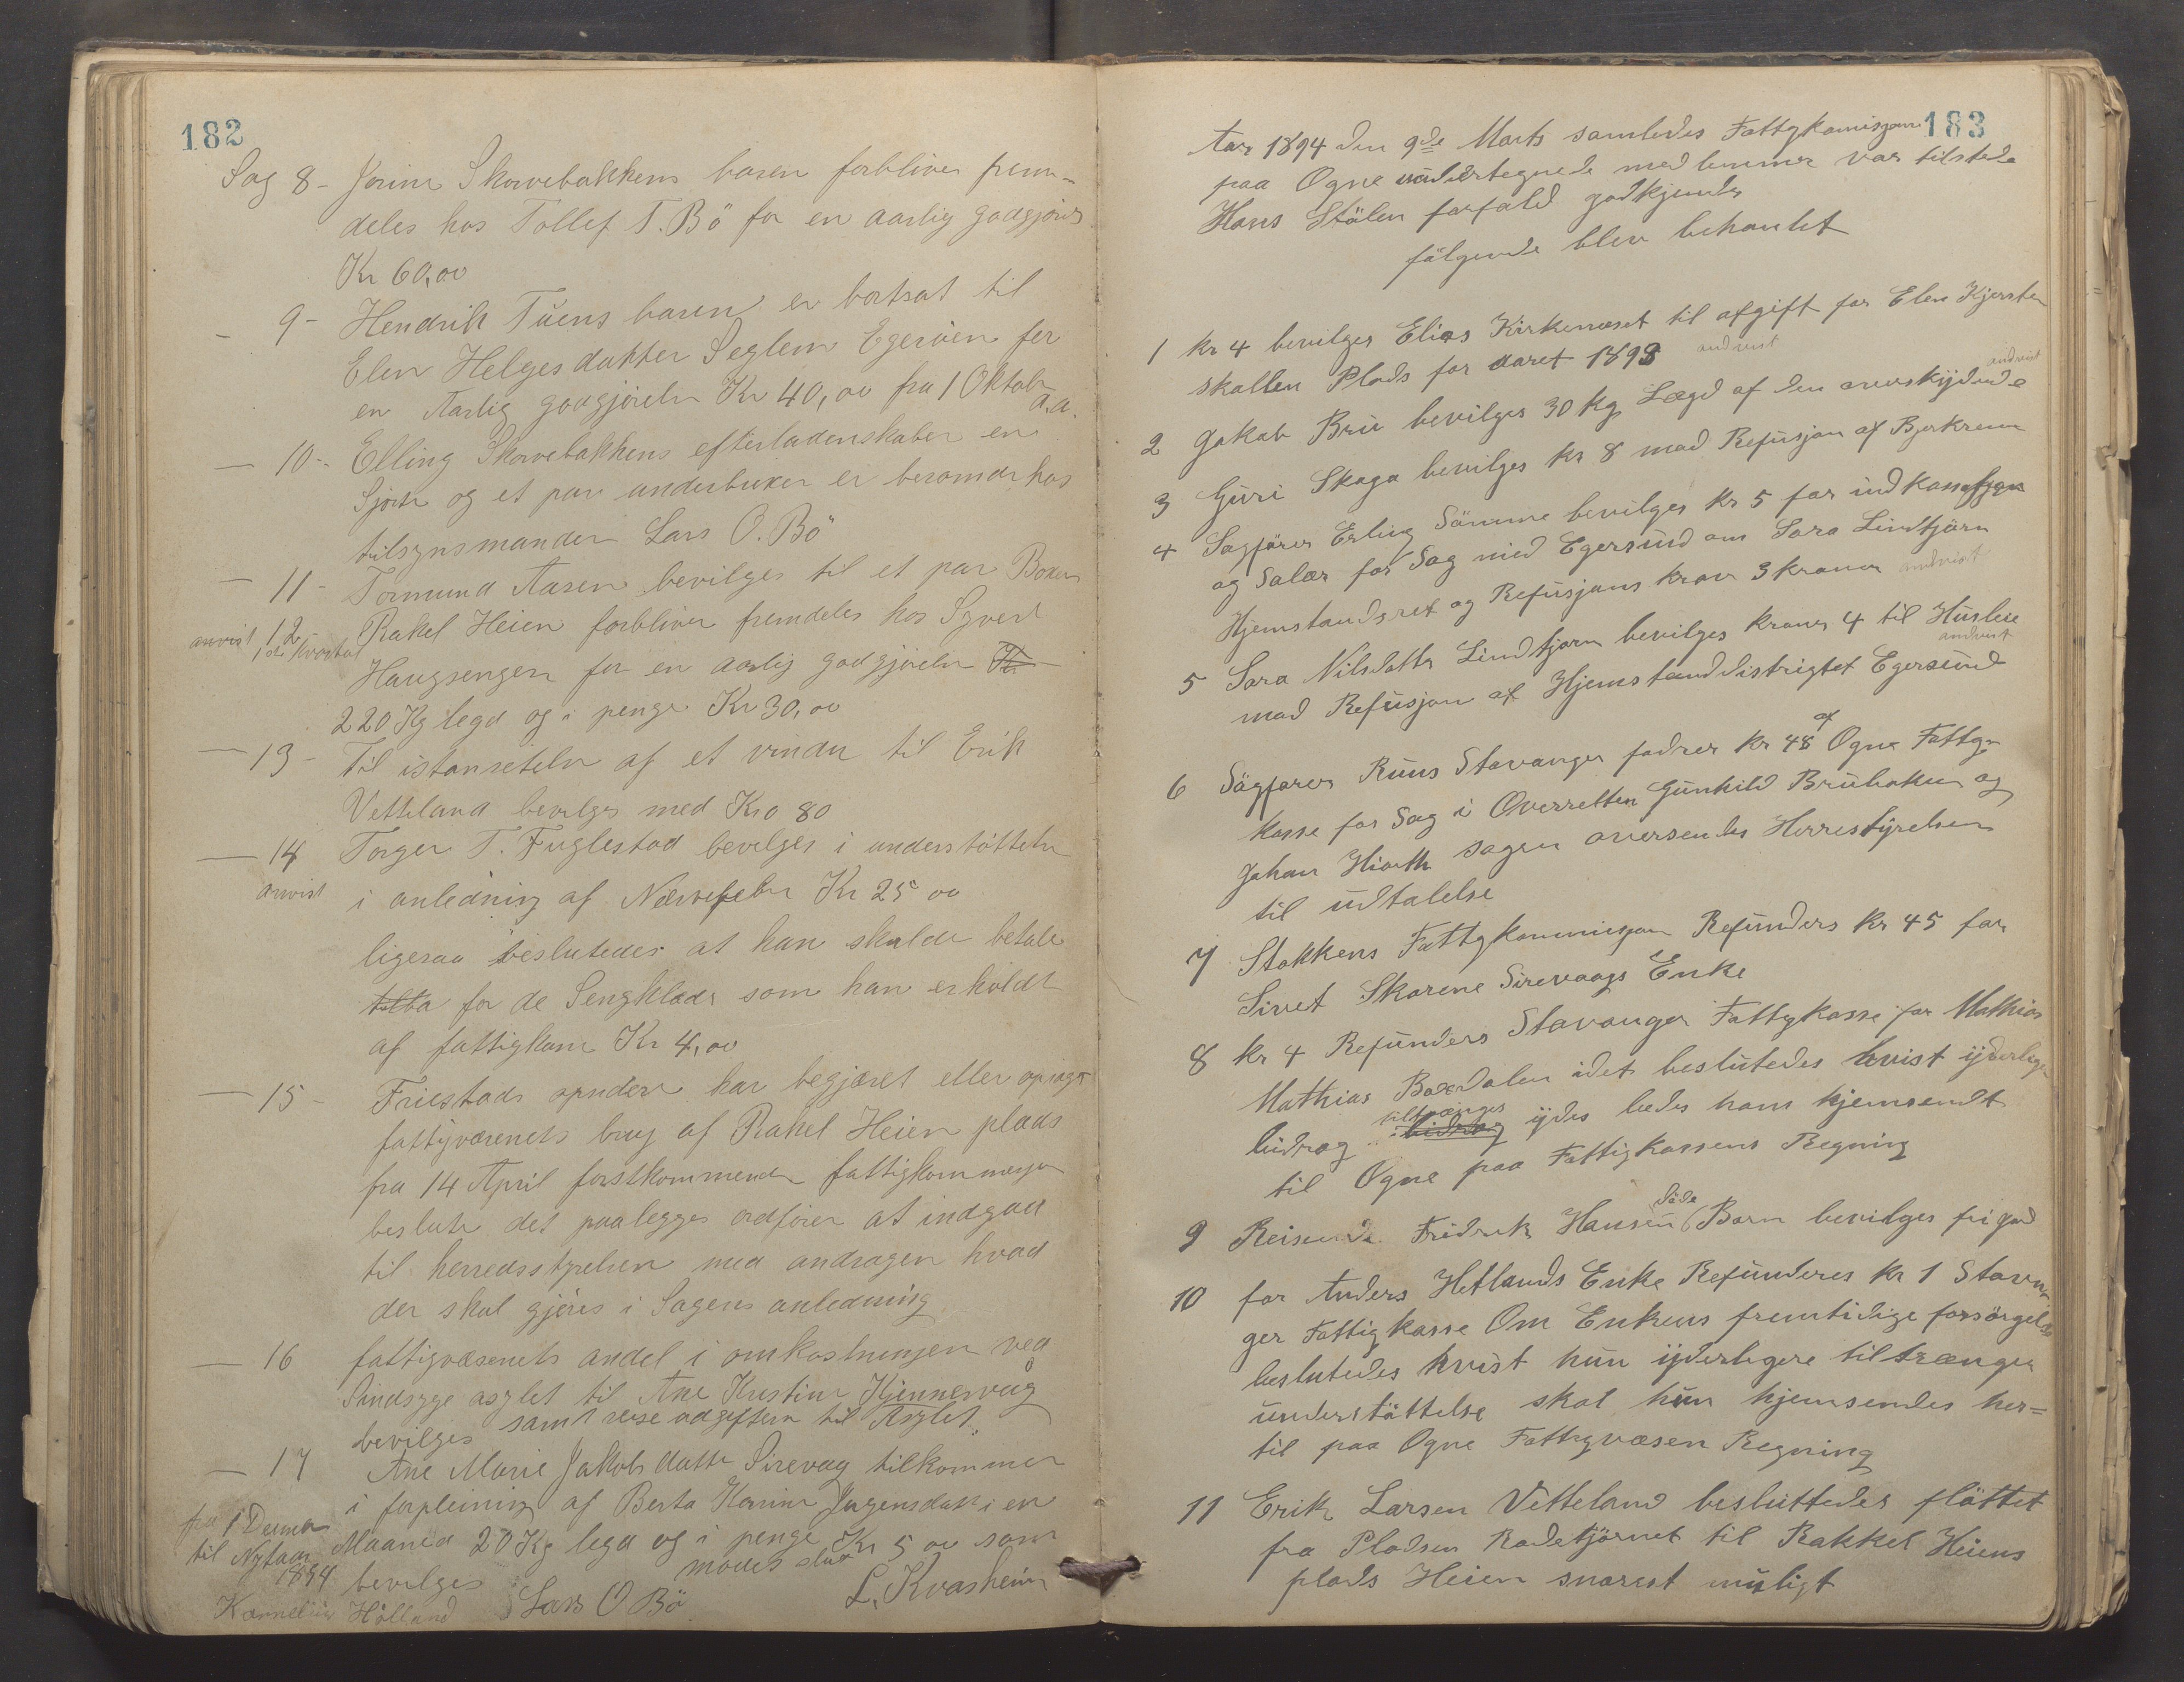 182
Sag 8 - Jorine Skorvebakkens baren forbliver frem-
deles hos Tollef T. Bö for en aarlig godgjörels
Kr 60,00
- 9 - Hendrik Tuens baren er bortsat til
Elen Helgesdatter Seglem Egeröen for
en Aarlig godgjöreln Kr 40,00 fra 1 Oktob
a.a.
- 10 - Elling Skorvebakkens efterladenskaber en
Sjorte og et par underbuxer er beroende hos
tilsynsmanden Lars O. Bö
- 11 - Tormund Aasen bevilges til et par Boxer
anvist 12 Rakel Heien forbliver fremdeles hos Syvert
1ste Kvartal
Haugsengen for en aarlig godgjöreln
220 Kg legd og i penge Kr 30,00
- 13 - Til istanseteln af et vindu til Erik
Vetteland bevilges med Kr 0 80
- 14 Torger T. Fuglestad bevelges i understötteln
anvist i anledning af Nervefeber Kr 25 00
ligesaa beslutedes at han skulde betale
for de Sengklæder som han erholdt
af fattigkassen Kr 4,00
- 15 - Friestads opsidere har begjæret eller opsagt
fattigvæsenets brug af Rakel Heien plads
fra 14 April førstkommende fattigkommisjon
beslutter det paalegges ordfører at indgaa
til herredsstyrelsen med andragen hvad
der skal gjöres i Sagens anledning
- 16 fattigvæsenets andel i omkostningen ved
Sindsyge asylet til Ane Kristine Kjennervag
bevilges samt reise udgiftern til Asylet.
- 17 Ane Marie Jakobsdatter Sirevag tilkommer
i forpleining af Berta Jörgensdatter i en
fra 1 Decmbr
til Nytaar Maaned 20 Kg legd og i penge Kr 5 00 som
1894 bevelges
modes slut
Kornelius Hölland Lars O Bö L. Kvasheim
183
Aar 1894 den 9de Marts samledes Fattykomisjon
paa Ogne undertegnede medlemmer var tilstede
Hans Stölen forfald godkjendes
fölgende blev behandlet
1 kr 4 bevilges Elias Kirkenæset til afgift for Elen Kjersten
skallen Plads for aaret 1893 andvist
andvist
2 Jakob Bru bevilges 30 kg Lægd af den overskydende
3 Guri Skaga bevilges kr 8 mod Refusjon af Bjerkreim
4 Sagförer Erling Sömme bevilges kr 5 for indkassasjon
og Salær for Sag med Egersund om Sara Lindtjörn
Hjemstandsret og Refusjons krav 3 kroner andvist
5 Sara Nilsdatter Lindtjorn bevilges kroner 4 til Husleie
andvist
mod Refusjon af Hjemstanddistrigtet Egersund
6 Sagförer Ruus Stavanger fodrer kr 48 af Ogne Fattig-
kasse for Sag i Overretten Gunhild Brubakken og
Johan Hiorth sagen oversendes Herrestyrelsen
til udtalelse
7 Stokkens Fattykommisjon Refunders kr 45 for
Sivet Skarene Sirevaags Enke
8 kr 4 Refunders Stavanger Fattigkasse for Mathias
Mathias Boxedalen idet beslutedes hvist yderligere
bidrag tiltrænges ydes bedes ham hjemsendt
til Ogne paa Fattigkassens Regning
9 Reisende Fredrik Hansen döde Barn bevilges fri grav
10 for Anders Hetlands Enke Refunderes kr 1 Stavan
ger Fattigkasse Om Enkens fremtidige forsörgelse
beslutedes hvist hun yderligere tiltrænger
understöttelse skal hun hjemsendes her=
til paa Ogne Fattigvæsen Regning
11 Erik Larsen Vetteland besluttedes flöttet
fra Pladsen Rodetjörnet til Rakkel Heiens
plads Heien snarest muligt